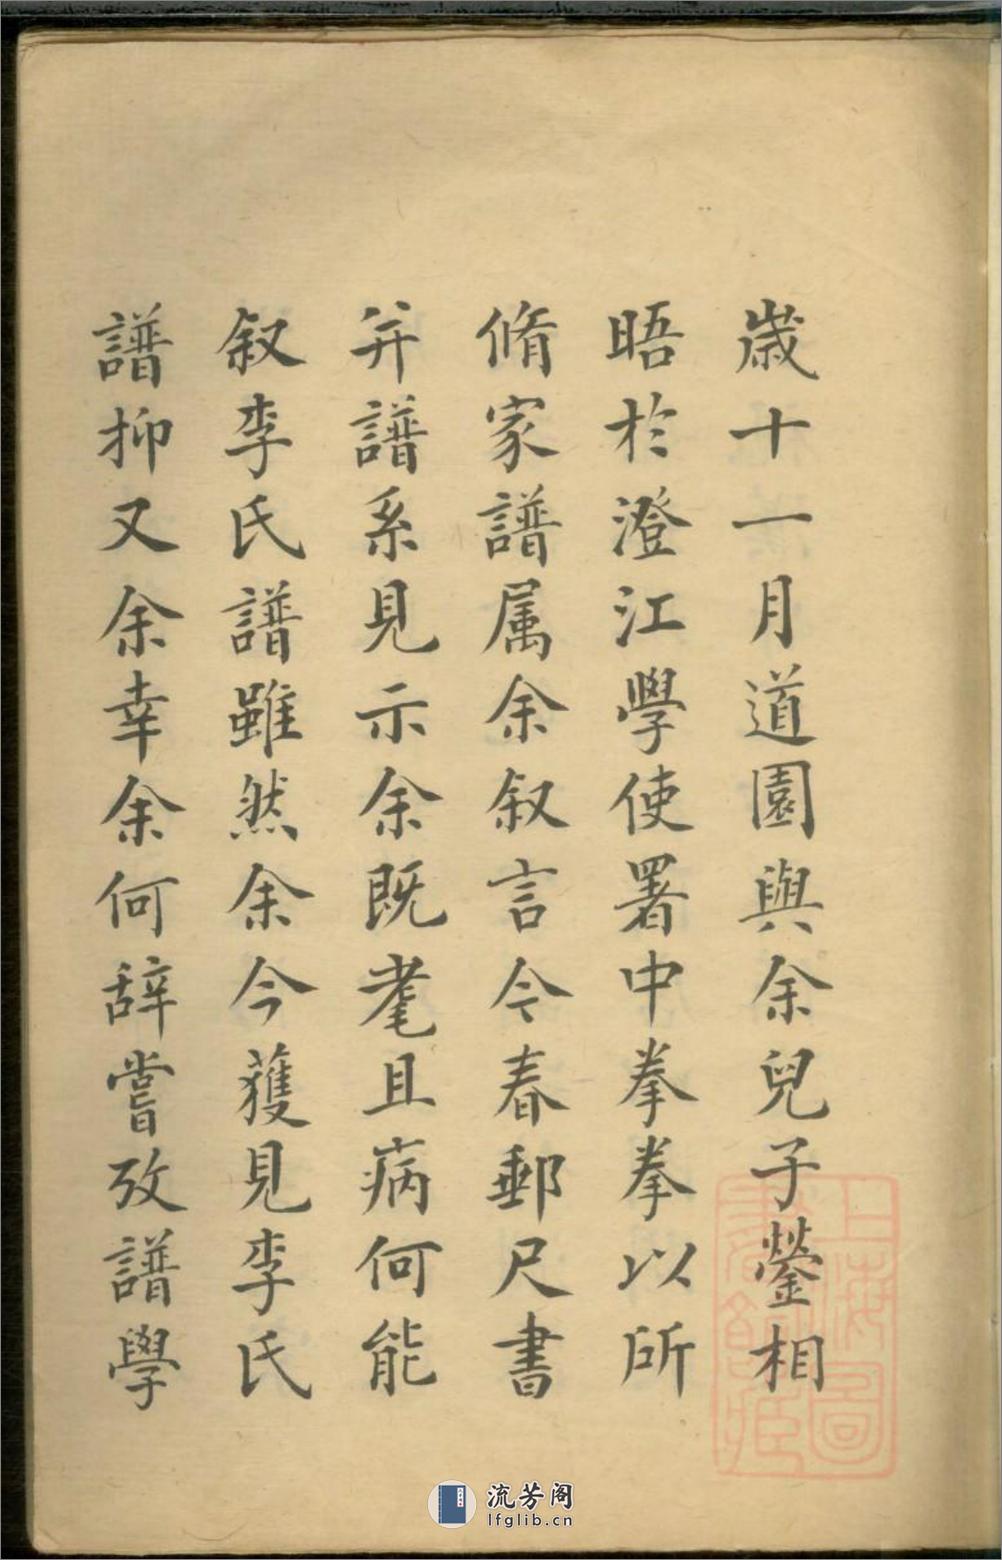 歲十一月道園與余兒子鎣相
晤於澄江學使署中拳拳以所
脩家譜属余叙言今春郵尺書
并譜系見示余既耄且病何能
叙李氏譜雖然余今獲見李氏
譜抑又余幸余何辞嘗攷譜學
上海圖書館藏
流芳阁
lfglib.cn